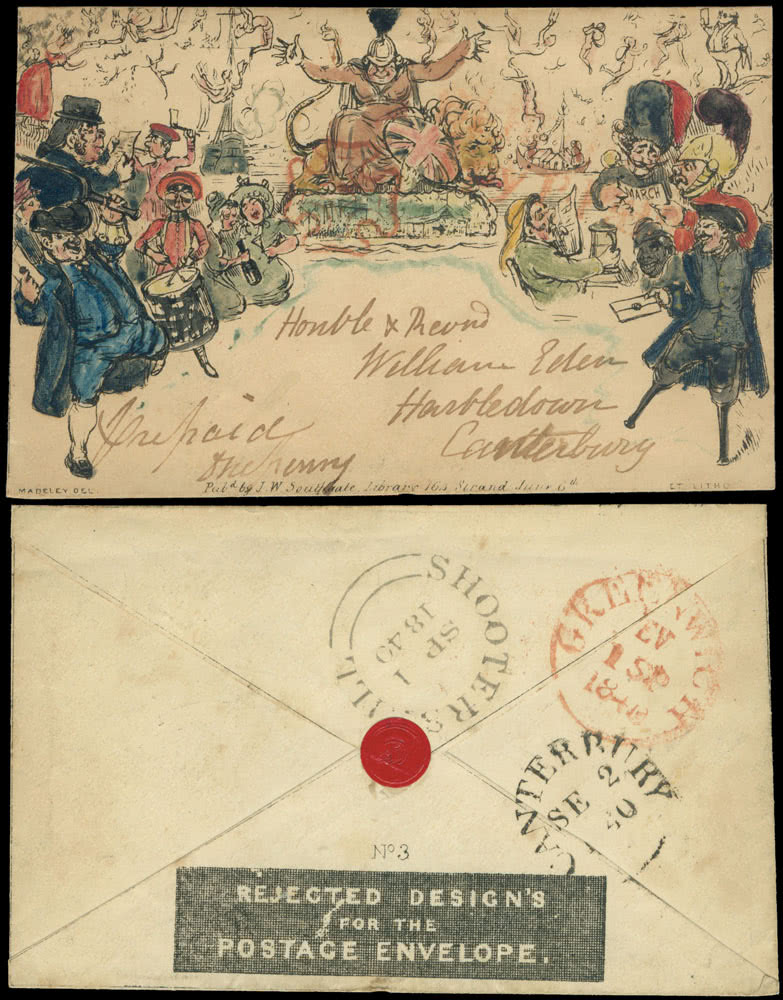 MARCH
Honble & Revnd
William Eden
Harbledown
Canterbury
Prepaid
One penny
MADELEY DEL.
Pubd. by J. W. Southgate Library 164 Strand June 6th
LITHO
SHOOTERS HILL
SP 1
1840
GREENWICH
EV
1 SP
1840
CANTERBURY
SE 2
40
No 3
REJECTED DESIGN'S
FOR THE
POSTAGE ENVELOPE.